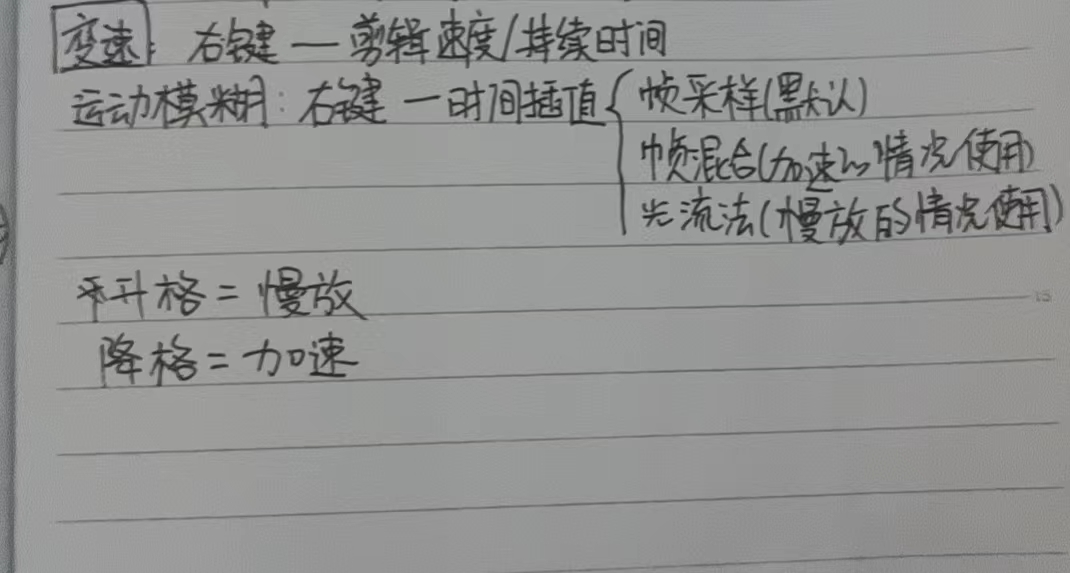 变速: 右键 — 剪辑速度/持续时间
运动模糊: 右键 — 时间插值{ 帧采样(默认)
帧混合(加速的情况使用)
光流法(慢放的情况使用)
升格 = 慢放
降格 = 加速
15